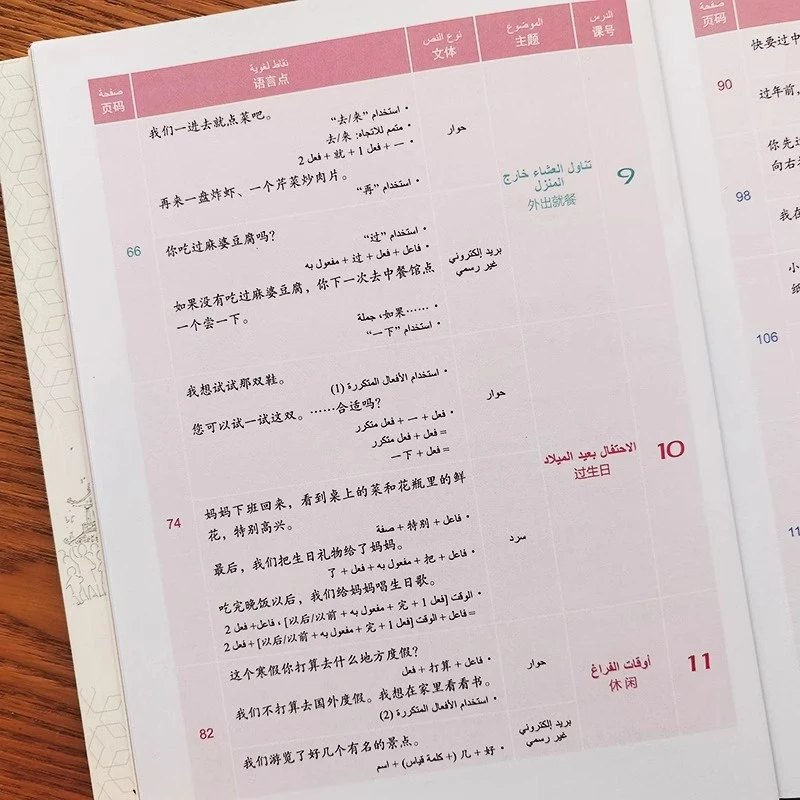 الدرس
课号
الموضوع
主题
نوع النص
文体
نقاط لغوية
语言点
صفحة
页码
9
تناول العشاء خارج
المنزل
外出就餐
حوار
我们一进去就点菜吧。
• استخدام "去/来"
• متمم للاتجاه: 来/去
• 一 + فعل 1 + 就 + فعل 2
再来一盘炸虾、一个芹菜炒肉片。
• استخدام "再"
66
بريد إلكتروني
غير رسمي
你吃过麻婆豆腐吗?
• استخدام "过"
• فاعل + فعل + 过 + مفعول به
如果没有吃过麻婆豆腐，你下一次去中餐馆点
一个尝一下。
• 如果……، جملة
• استخدام "一下"
10
الاحتفال بعيد الميلاد
过生日
حوار
我想试试那双鞋。
• استخدام الأفعال المتكررة (1)
您可以试一试这双。……合适吗?
• فعل + 一 + فعل متكرر
= فعل + فعل متكرر
= فعل + 一下
74
سرد
妈妈下班回来，看到桌上的菜和花瓶里的鲜
花，特别高兴。
• فاعل + 特别 + صفة
最后，我们把生日礼物给了妈妈。
• فاعل + 把 + مفعول به + فعل + 了
吃完晚饭以后，我们给妈妈唱生日歌。
• الوقت [فعل 1 + 完 + مفعول به + 以后/以前]، فاعل + فعل 2
= فاعل + الوقت [فعل 1 + 完 + مفعول به + 以后/以前] + فعل 2
11
أوقات الفراغ
休闲
حوار
这个寒假你打算去什么地方度假?
• فاعل + 打算 + فعل
我们不打算去国外度假。我想在家里看看书。
• استخدام الأفعال المتكررة (2)
82
بريد إلكتروني
غير رسمي
我们游览了好几个有名的景点。
• 好 + 几 (+ كلمة قياس) + اسم
صفحة
页码
快要过中
90
过年前，
你先
向右
98
我在
小
纸
106
11